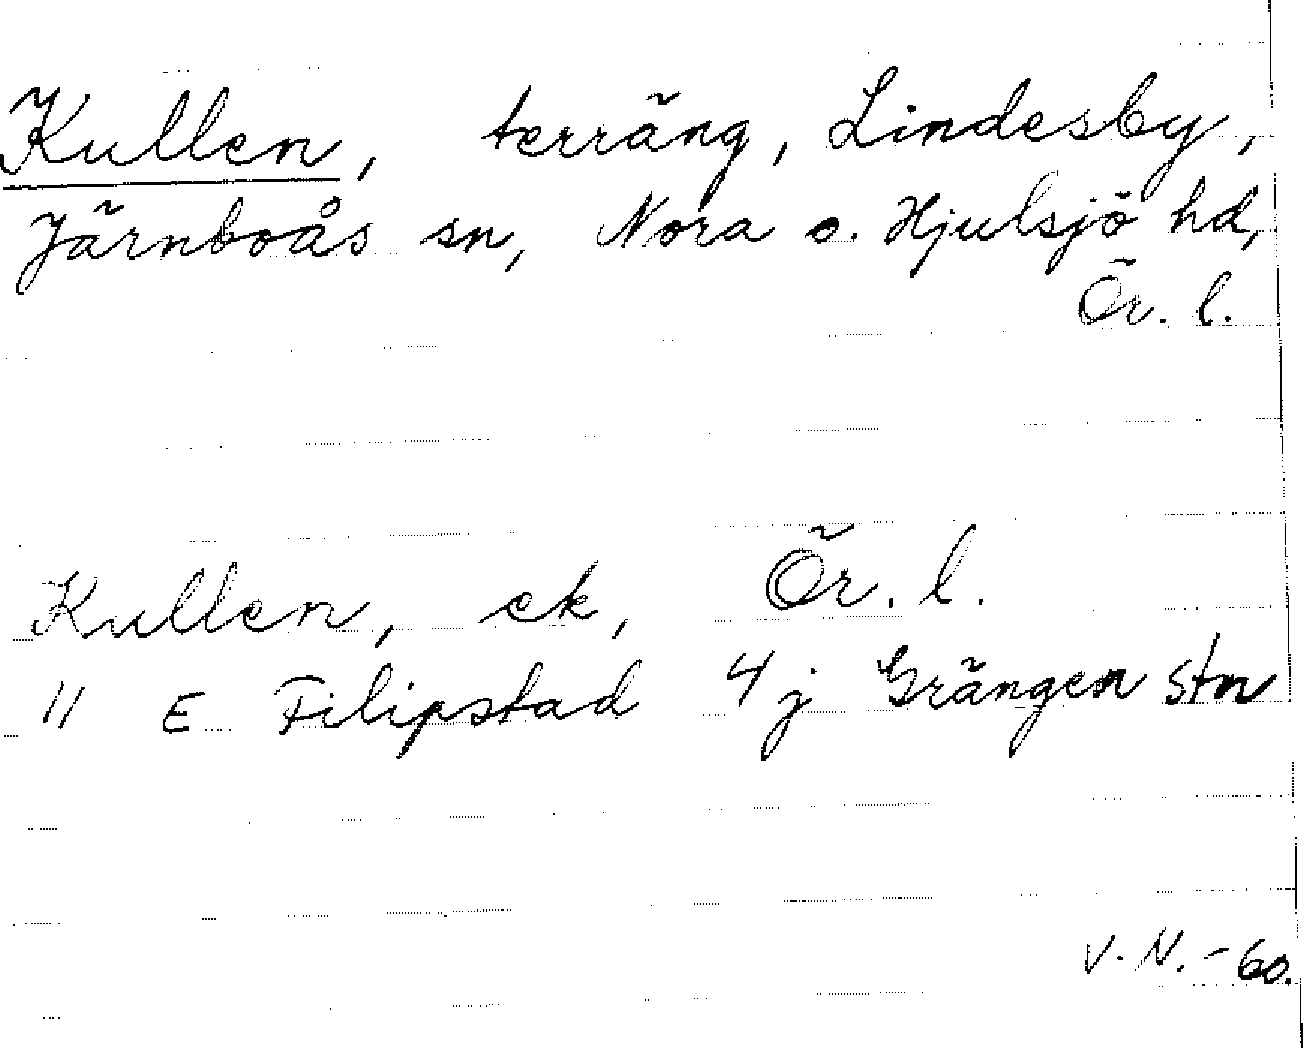 Kullen, terräng, Lindesby,
Järnboås sn, Nora o. Hjulsjö hd,
Ör. l.
Kullen, ek, Ör. l.
" E Filipstad 4 j Grängen stn
V. N. -60.